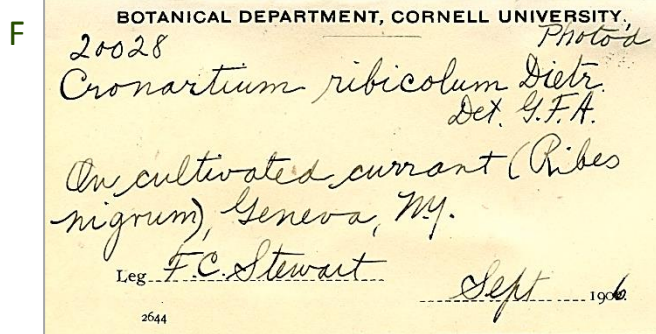 F
BOTANICAL DEPARTMENT, CORNELL UNIVERSITY.
20028 Photo'd
Cronartium ribicolum Dietr.
Det. G.F.A.
On cultivated currant (Ribes
nigrum), Geneva, N.Y.
Leg. F.C. Stewart
Sept 1906.
2644